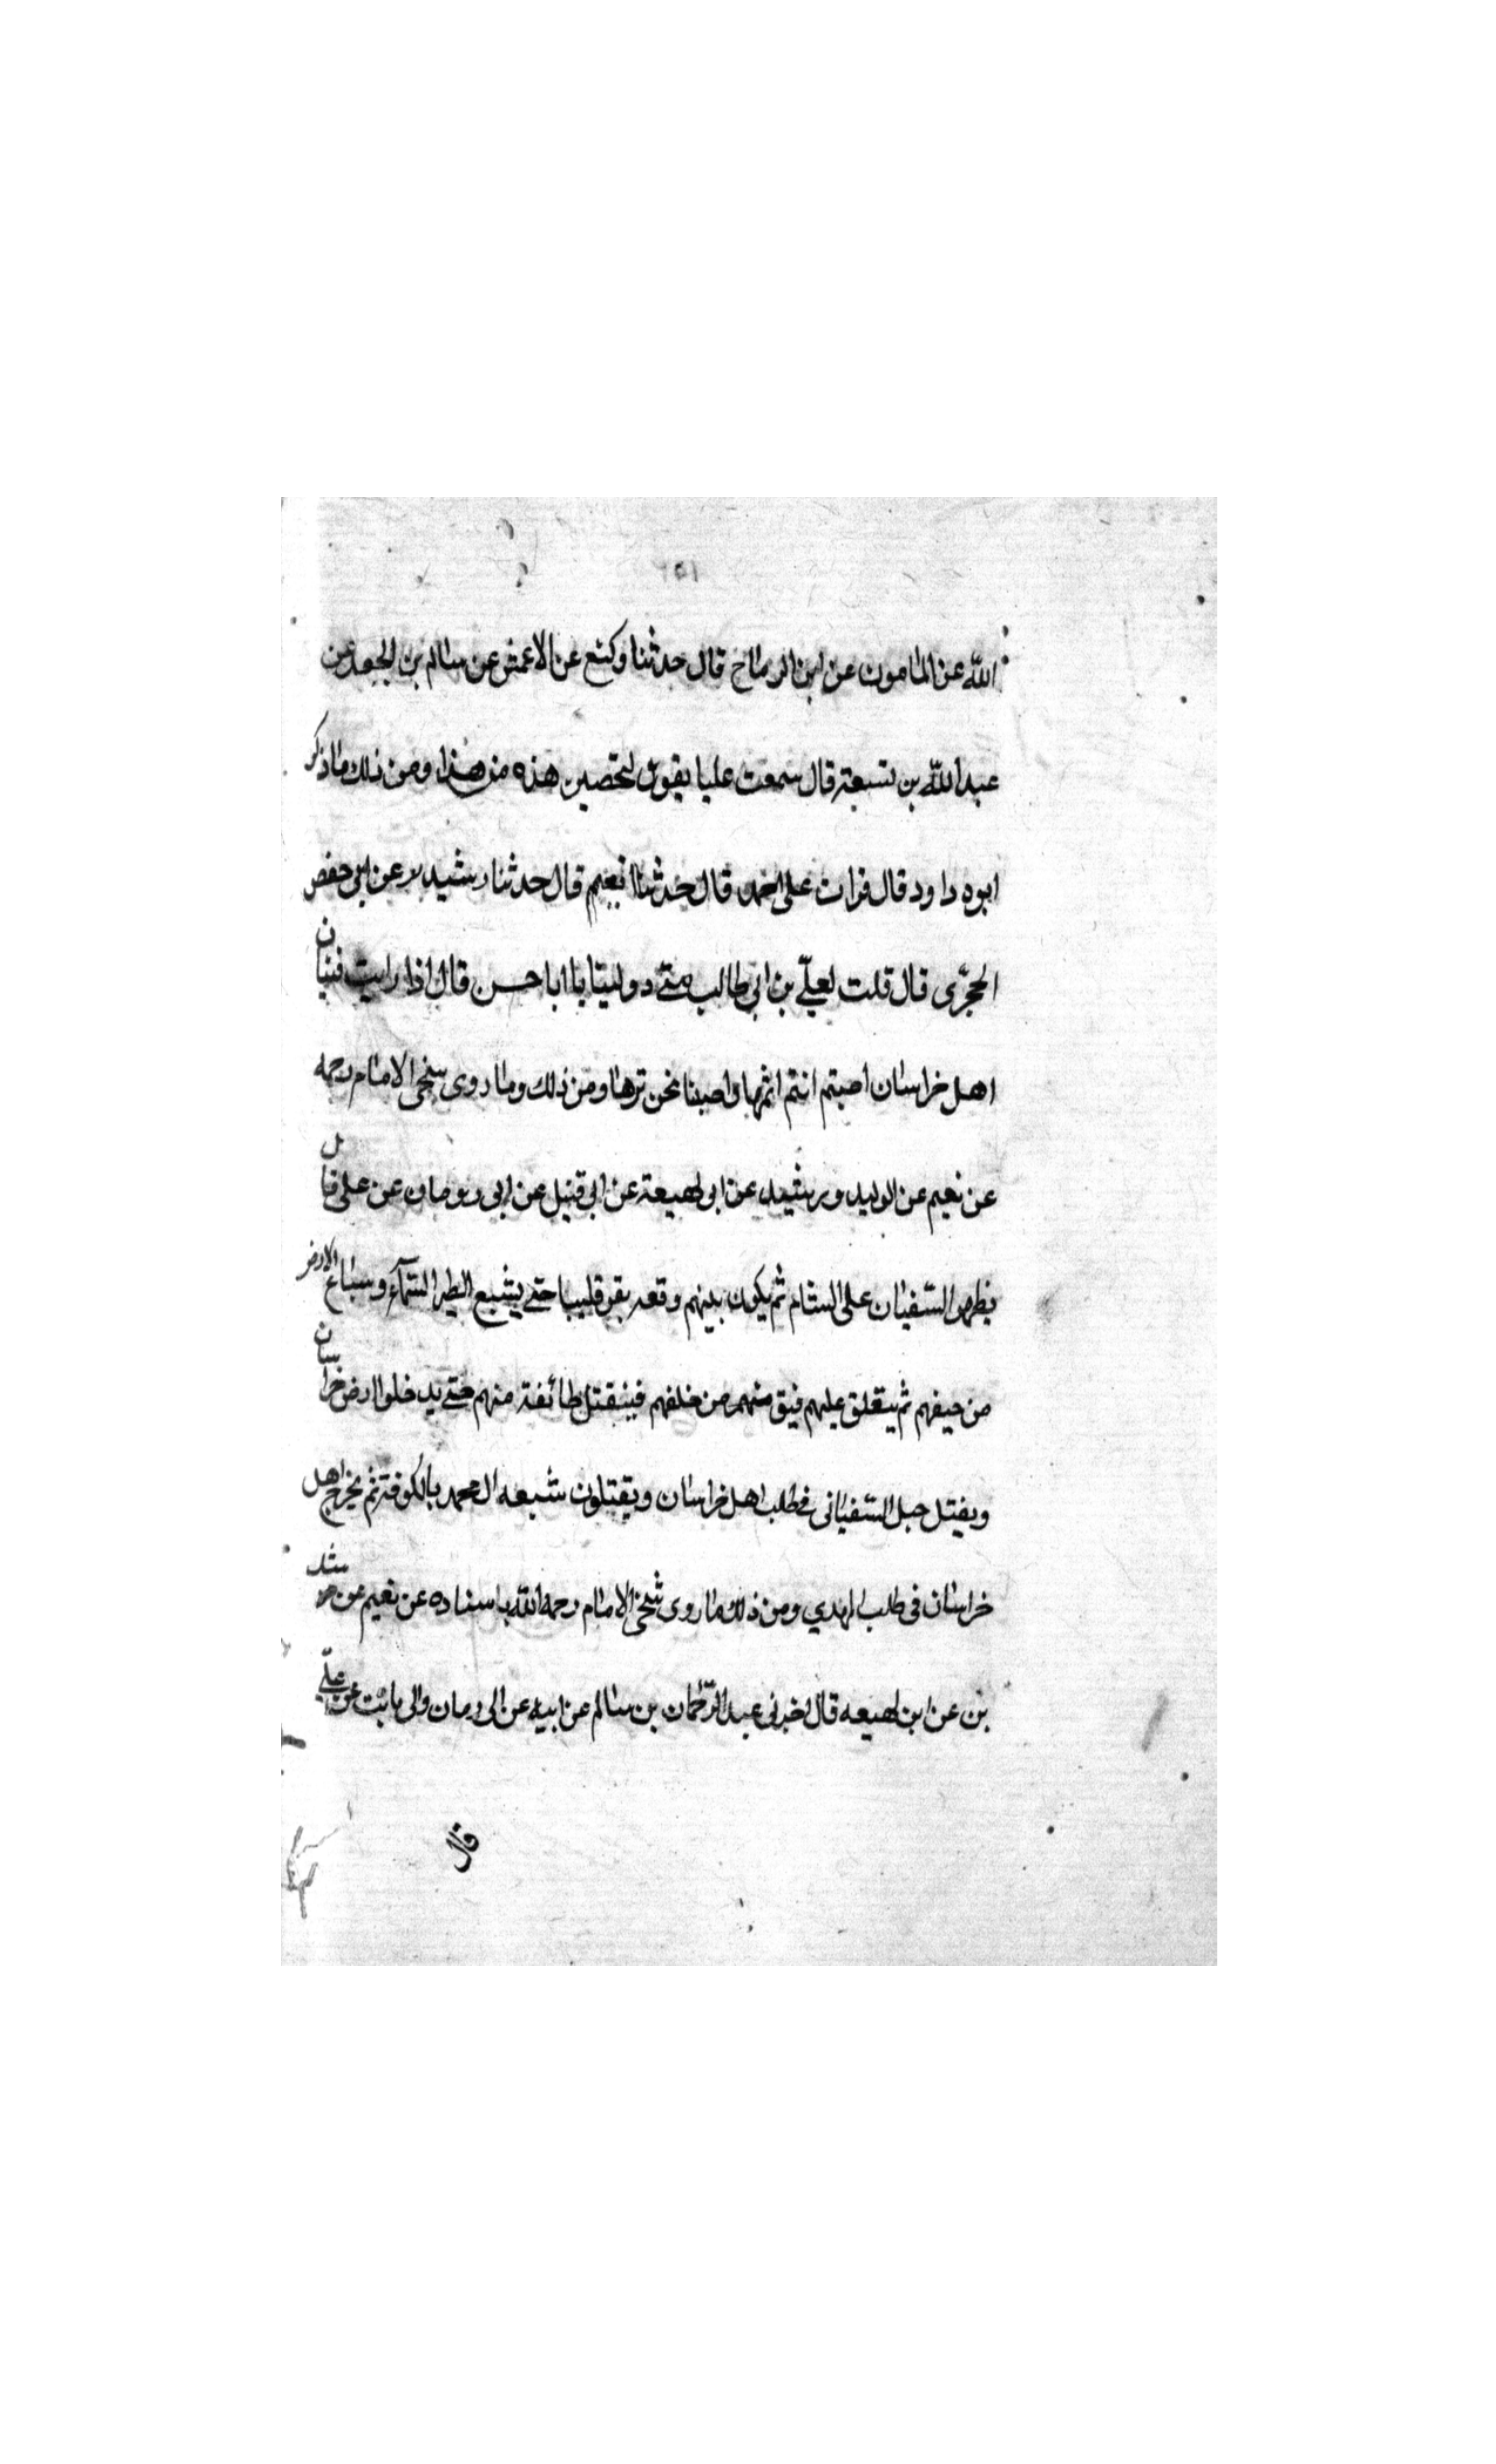 ٢٥١
الله عن المامون عن ابن الرماح قال حدثنا وكيع عن الاعمش عن سالم بن الجعد عن
عبد الله بن تسبعة قال سمعت عليا يقول لتخضبن هذه من هذا ومن ذلك ما ذكر
ابوه داود قال قرات على احمد قال حدثنا نعيم قال حدثنا رشيد عن ابي حفص
الحجري قال قلت لعلي بن ابي طالب متى دولتنا يا ابا حسن قال اذا رايت فتيان
اهل خراسان اصبتم انتم اثمها واصبنا نحن برها ومن ذلك وما روى شيخي الامام رحمه
عن نعيم عن الوليد ورشيد عن ابو لهيعة عن ابي قبيل عن ابي رومان عن على قال
يظهر السفيان على الشام ثم يكون بينهم وقعه بقرقليبا حتى يشبع الطير السمآء وسباع الارض
من جيفهم ثم يتعلق عليهم فيق منهم من خلفهم فينقتل طائفة منهم حتى يدخلوا ارض خراسان
ويقتل خيل السفياني في طلب اهل خراسان ويقتلون شيعه ال محمد بالكوفة ثم يخرج اهل
خراسان في طلب المهدي ومن ذلك ما روى شيخي الامام رحمه الله باسناده عن نعيم عن
بن عن ابن لهيعه قال اخبرني عبد الرحمان بن سالم عن ابيه عن ابي رومان وابي ثابت عن علي
قال